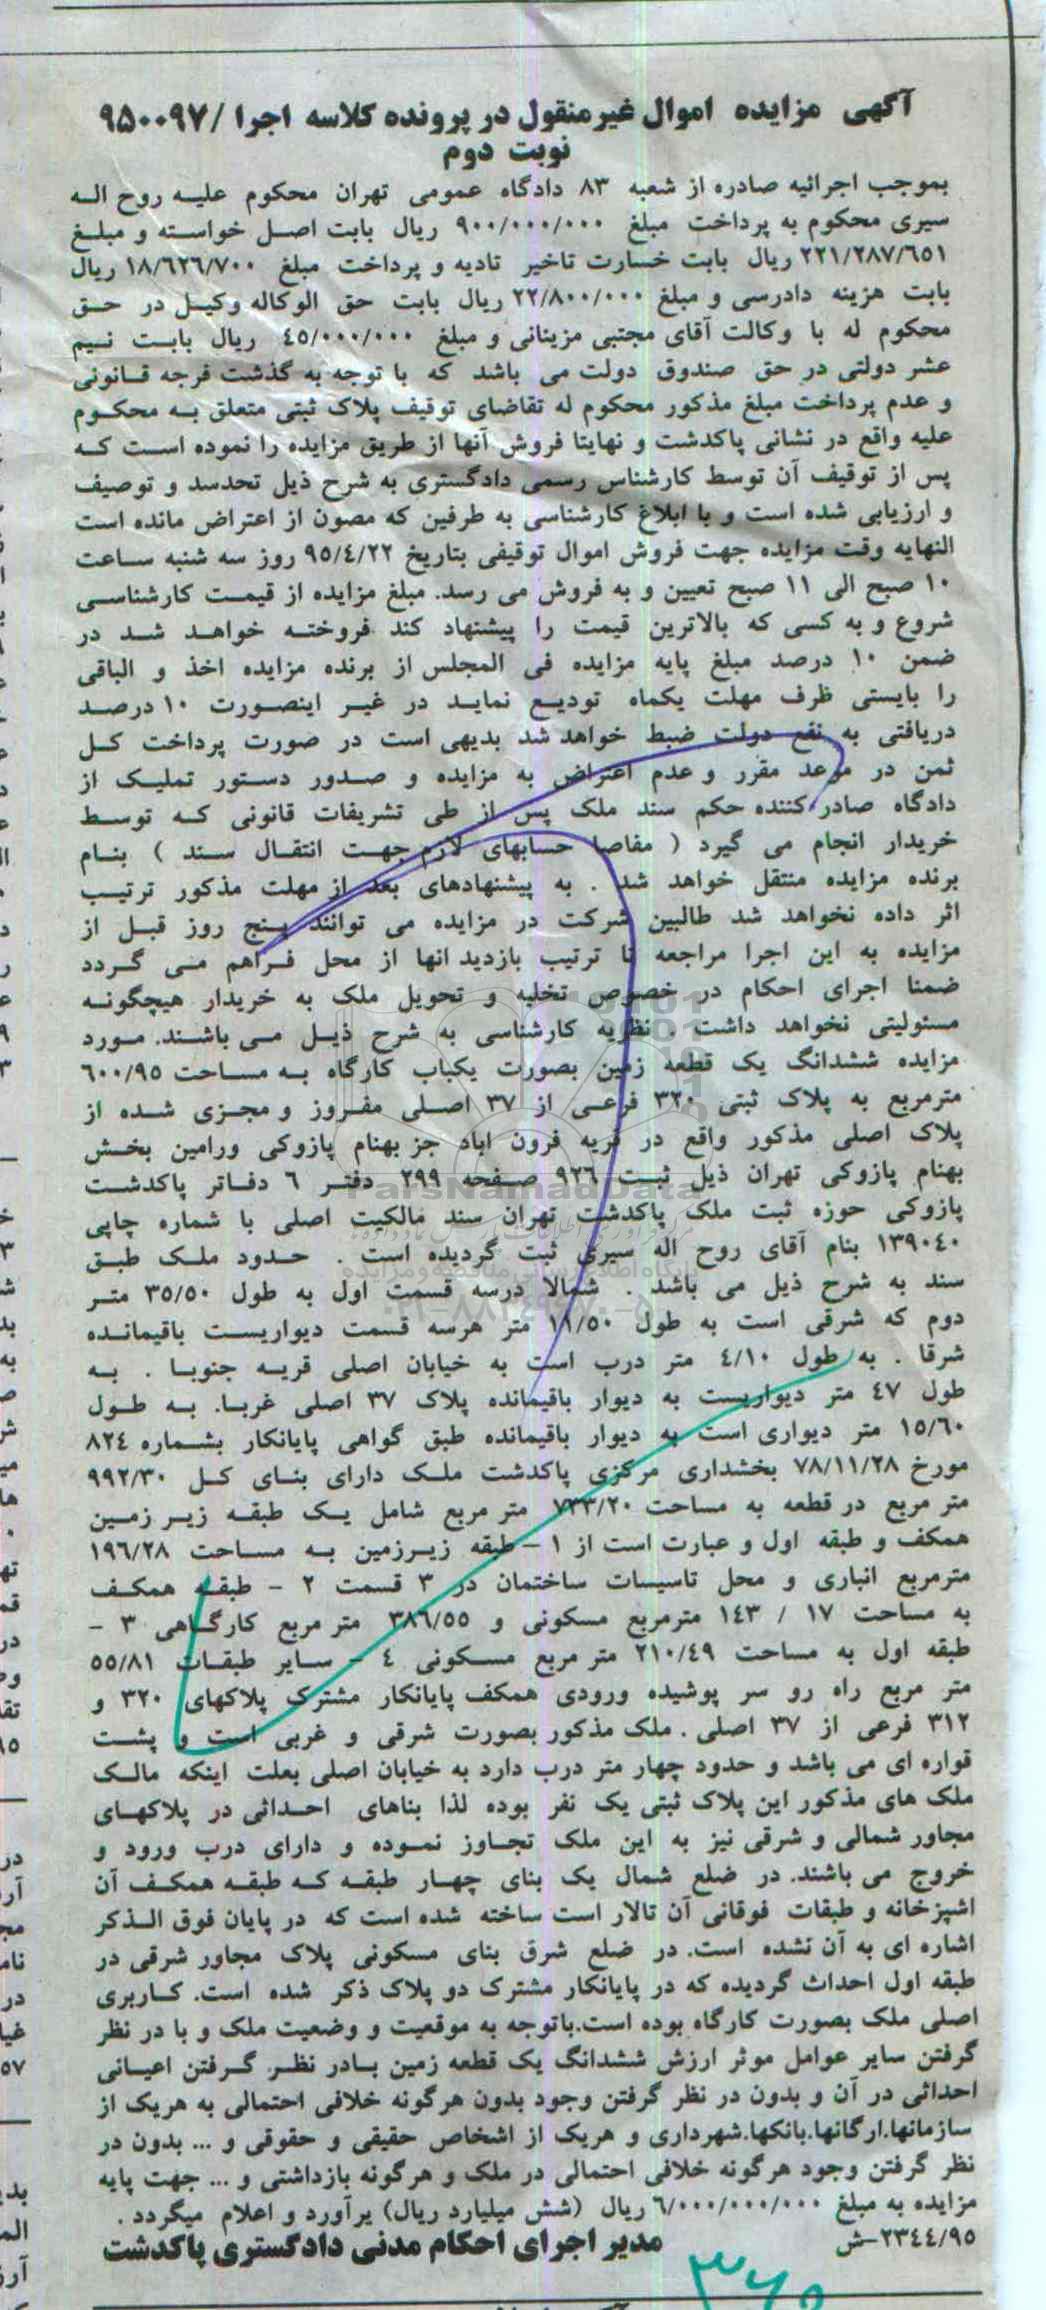 آگهی مزایده اموال غیرمنقول در پرونده کلاسه اجرا /۹۵۰۰۹۷
نوبت دوم
بموجب اجرائیه صادره از شعبه ۸۳ دادگاه عمومی تهران محکوم علیه روح اله
سیری محکوم به پرداخت مبلغ ۹۰۰/۰۰۰/۰۰۰ ریال بابت اصل خواسته و مبلغ
۲۲۱/۲۸۷/۶۵۱ ریال بابت خسارت تاخیر تادیه و پرداخت مبلغ ۱۸/۶۲۶/۷۰۰ ریال
بابت هزینه دادرسی و مبلغ ۲۲/۸۰۰/۰۰۰ ریال بابت حق الوکاله وکیل در حق
محکوم له با وکالت آقای مجتبی مزینانی و مبلغ ۴۵/۰۰۰/۰۰۰ ریال بابت نیم
عشر دولتی در حق صندوق دولت می باشد که با توجه به گذشت فرجه قانونی
و عدم پرداخت مبلغ مذکور محکوم له تقاضای توقیف پلاک ثبتی متعلق به محکوم
علیه واقع در نشانی پاکدشت و نهایتا فروش آنها از طریق مزایده را نموده است که
پس از توقیف آن توسط کارشناس رسمی دادگستری به شرح ذیل تحدسد و توصیف
و ارزیابی شده است و با ابلاغ کارشناسی به طرفین که مصون از اعتراض مانده است
النهایه وقت مزایده جهت فروش اموال توقیفی بتاریخ ۹۵/۴/۲۲ روز سه شنبه ساعت
۱۰ صبح الی ۱۱ صبح تعیین و به فروش می رسد. مبلغ مزایده از قیمت کارشناسی
شروع و به کسی که بالاترین قیمت را پیشنهاد کند فروخته خواهد شد در
ضمن ۱۰ درصد مبلغ پایه مزایده فی المجلس از برنده مزایده اخذ و الباقی
را بایستی ظرف مهلت یکماه تودیع نماید در غیر اینصورت ۱۰ درصد
دریافتی به نفع دولت ضبط خواهد شد بدیهی است در صورت پرداخت کل
ثمن در موعد مقرر و عدم اعتراض به مزایده و صدور دستور تملیک از
دادگاه صادر کننده حکم سند ملک پس از طی تشریفات قانونی که توسط
خریدار انجام می گیرد ( مفاصا حسابهای لازم جهت انتقال سند ) بنام
برنده مزایده منتقل خواهد شد . به پیشنهادهای بعد از مهلت مذکور ترتیب
اثر داده نخواهد شد طالبین شرکت در مزایده می توانند پنج روز قبل از
مزایده به این اجرا مراجعه تا ترتیب بازدید انها از محل فراهم می گردد
ضمنا اجرای احکام در خصوص تخلیه و تحویل ملک به خریدار هیچگونه
مسئولیتی نخواهد داشت نظریه کارشناسی به شرح ذیل می باشند. مورد
مزایده ششدانگ یک قطعه زمین بصورت یکباب کارگاه به مساحت ۶۰۰/۹۵
مترمربع به پلاک ثبتی ۳۲۰ فرعی از ۳۷ اصلی مفروز و مجزی شده از
پلاک اصلی مذکور واقع در قریه فرون اباد جز بهنام پازوکی ورامین بخش
بهنام پازوکی تهران ذیل ثبت ۹۲۶ صفحه ۲۹۹ دفتر ۶ دفاتر پاکدشت
پازوکی حوزه ثبت ملک پاکدشت تهران سند مالکیت اصلی با شماره چاپی
۱۳۹۰۴۰ بنام آقای روح اله سیری ثبت گردیده است . حدود ملک طبق
سند به شرح ذیل می باشد . شمالا درسه قسمت اول به طول ۳۵/۵۰ متر
دوم که شرقی است به طول ۱۱/۵۰ متر هرسه قسمت دیواریست باقیمانده
شرقا . به طول ۴/۱۰ متر درب است به خیابان اصلی قریه جنوبا . به
طول ۴۷ متر دیواریست به دیوار باقیمانده پلاک ۳۷ اصلی غربا. به طول
۱۵/۶۰ متر دیواری است به دیوار باقیمانده طبق گواهی پایانکار بشماره ۸۲۴
مورخ ۷۸/۱۱/۲۸ بخشداری مرکزی پاکدشت ملک دارای بنای کل ۹۹۲/۳۰
متر مربع در قطعه به مساحت ۷۳۳/۲۰ متر مربع شامل یک طبقه زیر زمین
همکف و طبقه اول و عبارت است از ۱ - طبقه زیرزمین به مساحت ۱۹۶/۲۸
مترمربع انباری و محل تاسیسات ساختمان در ۳ قسمت ۲ - طبقه همکف
به مساحت ۱۷ / ۱۴۳ مترمربع مسکونی و ۳۸۶/۵۵ متر مربع کارگاهی ۳ -
طبقه اول به مساحت ۲۱۰/۴۹ متر مربع مسکونی ۴ - سایر طبقات ۵۵/۸۱
متر مربع راه رو سر پوشیده ورودی همکف پایانکار مشترک پلاکهای ۳۲۰ و
۳۱۲ فرعی از ۳۷ اصلی . ملک مذکور بصورت شرقی و غربی است و پشت
قواره ای می باشد و حدود چهار متر درب دارد به خیابان اصلی بعلت اینکه مالک
ملک های مذکور این پلاک ثبتی یک نفر بوده لذا بناهای احداثی در پلاکهای
مجاور شمالی و شرقی نیز به این ملک تجاوز نموده و دارای درب ورود و
خروج می باشند. در ضلع شمال یک بنای چهار طبقه که طبقه همکف آن
اشپزخانه و طبقات فوقانی آن تالار است ساخته شده است که در پایان فوق الذکر
اشاره ای به آن نشده است. در ضلع شرق بنای مسکونی پلاک مجاور شرقی در
طبقه اول احداث گردیده که در پایانکار مشترک دو پلاک ذکر شده است. کاربری
اصلی ملک بصورت کارگاه بوده است.باتوجه به موقعیت و وضعیت ملک و با در نظر
گرفتن سایر عوامل موثر ارزش ششدانگ یک قطعه زمین بادر نظر گرفتن اعیانی
احداثی در آن و بدون در نظر گرفتن وجود بدون هرگونه خلافی احتمالی به هریک از
سازمانها.ارگانها.بانکها.شهرداری و هریک از اشخاص حقیقی و حقوقی و ... بدون در
نظر گرفتن وجود هرگونه خلافی احتمالی در ملک و هرگونه بازداشتی و ... جهت پایه
مزایده به مبلغ ۶/۰۰۰/۰۰۰/۰۰۰ ریال (شش میلیارد ریال) برآورد و اعلام میگردد .
۲۳۴۴/۹۵-ش
مدیر اجرای احکام مدنی دادگستری پاکدشت
ParsNamadData